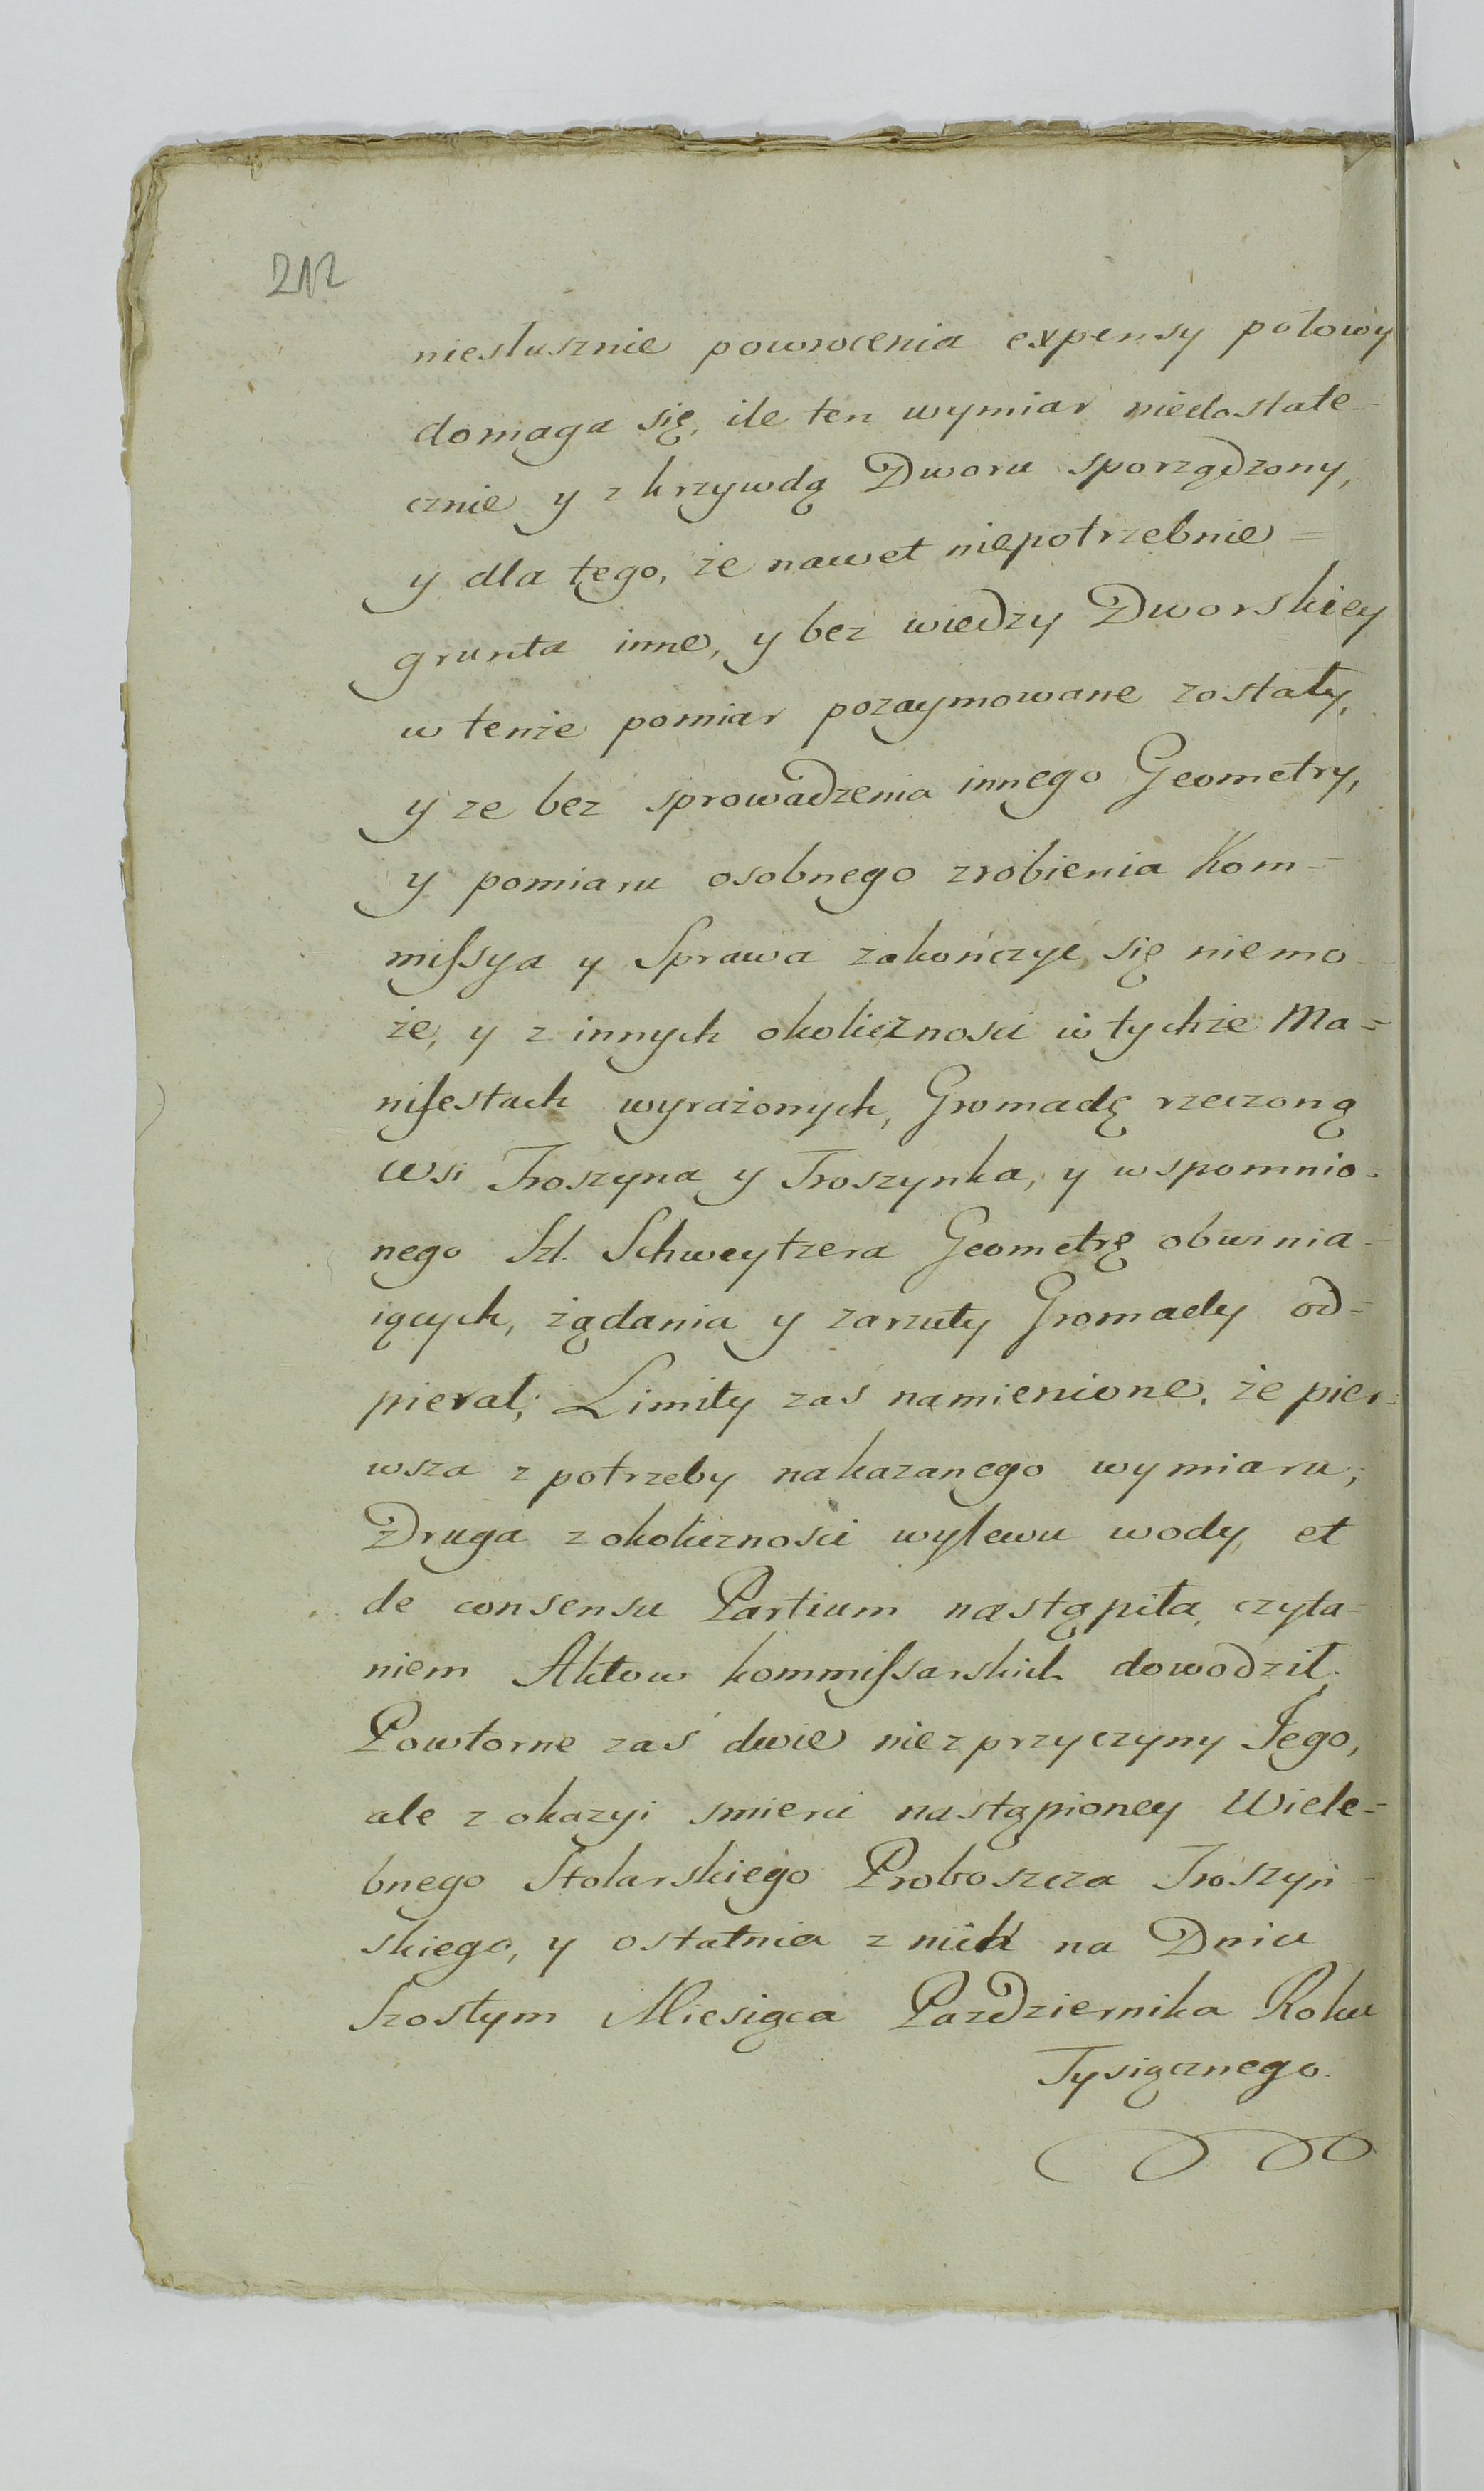 212
niesłusznie powrocenia expensy połowy
domaga się, ile ten wymiar niedostate-
cznie y z krzywdą Dworu sporządzony,
y dla tego, że nawet niepotrzebnie =
grunta inne, y bez wiedzy Dworskiey
w tenże pomiar pozaymowane zostały,
y ze bez sprowadzenia innego Geometry,
y pomiaru osobnego zrobienia Kom=
mifsya y Sprawa zakończyć się niemo-
że, y z innych okoliczności w tychże Ma=
nifestach wyrażonych, Gromadę rzeczoną
Wsi Troszyna y Troszynka, y wspomnio-
nego Szl. Schweytzera Geometrę obwinia-
iących, żądania y zarzuty Gromady od=
pierał; Limity zaś namienione, że pier=
wsza z potrzeby nakazanego wymiaru;
Druga z okoliczności wylewu wody et
de consensu Partium nastąpiła, czyta-
niem Aktow kommifsarskich dowodził.
Powtorne zaś dwie nie z przyczyny Jego,
ale z okazyi smierci nastąpioney Wiele=
bnego Stolarskiego Proboszcza Troszyń-
skiego, y ostatnia z nich na Dniu
Szostym Miesiąca Pazdziernika Roku
Tysiącznego.